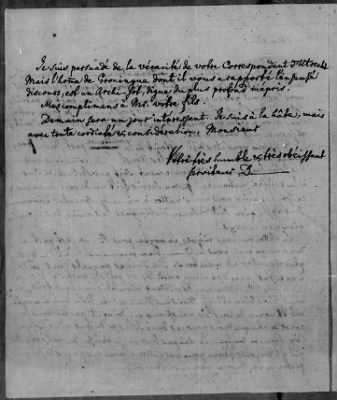 Je suis persuadé de la véracité de votre Correspondant d'Utrecht
Mais l'home de Groningue dont il vous a rapporté l'insensé
discours, est un Archi-fol, digne du plus profond mépris.
Mes complimens à Mr. votre fils.
Demain sera un jour intéressant. Je suis à la hâte, mais
avec toute cordiale & consideration, Monsieur
Votre très humble & très obéissant
serviteur D